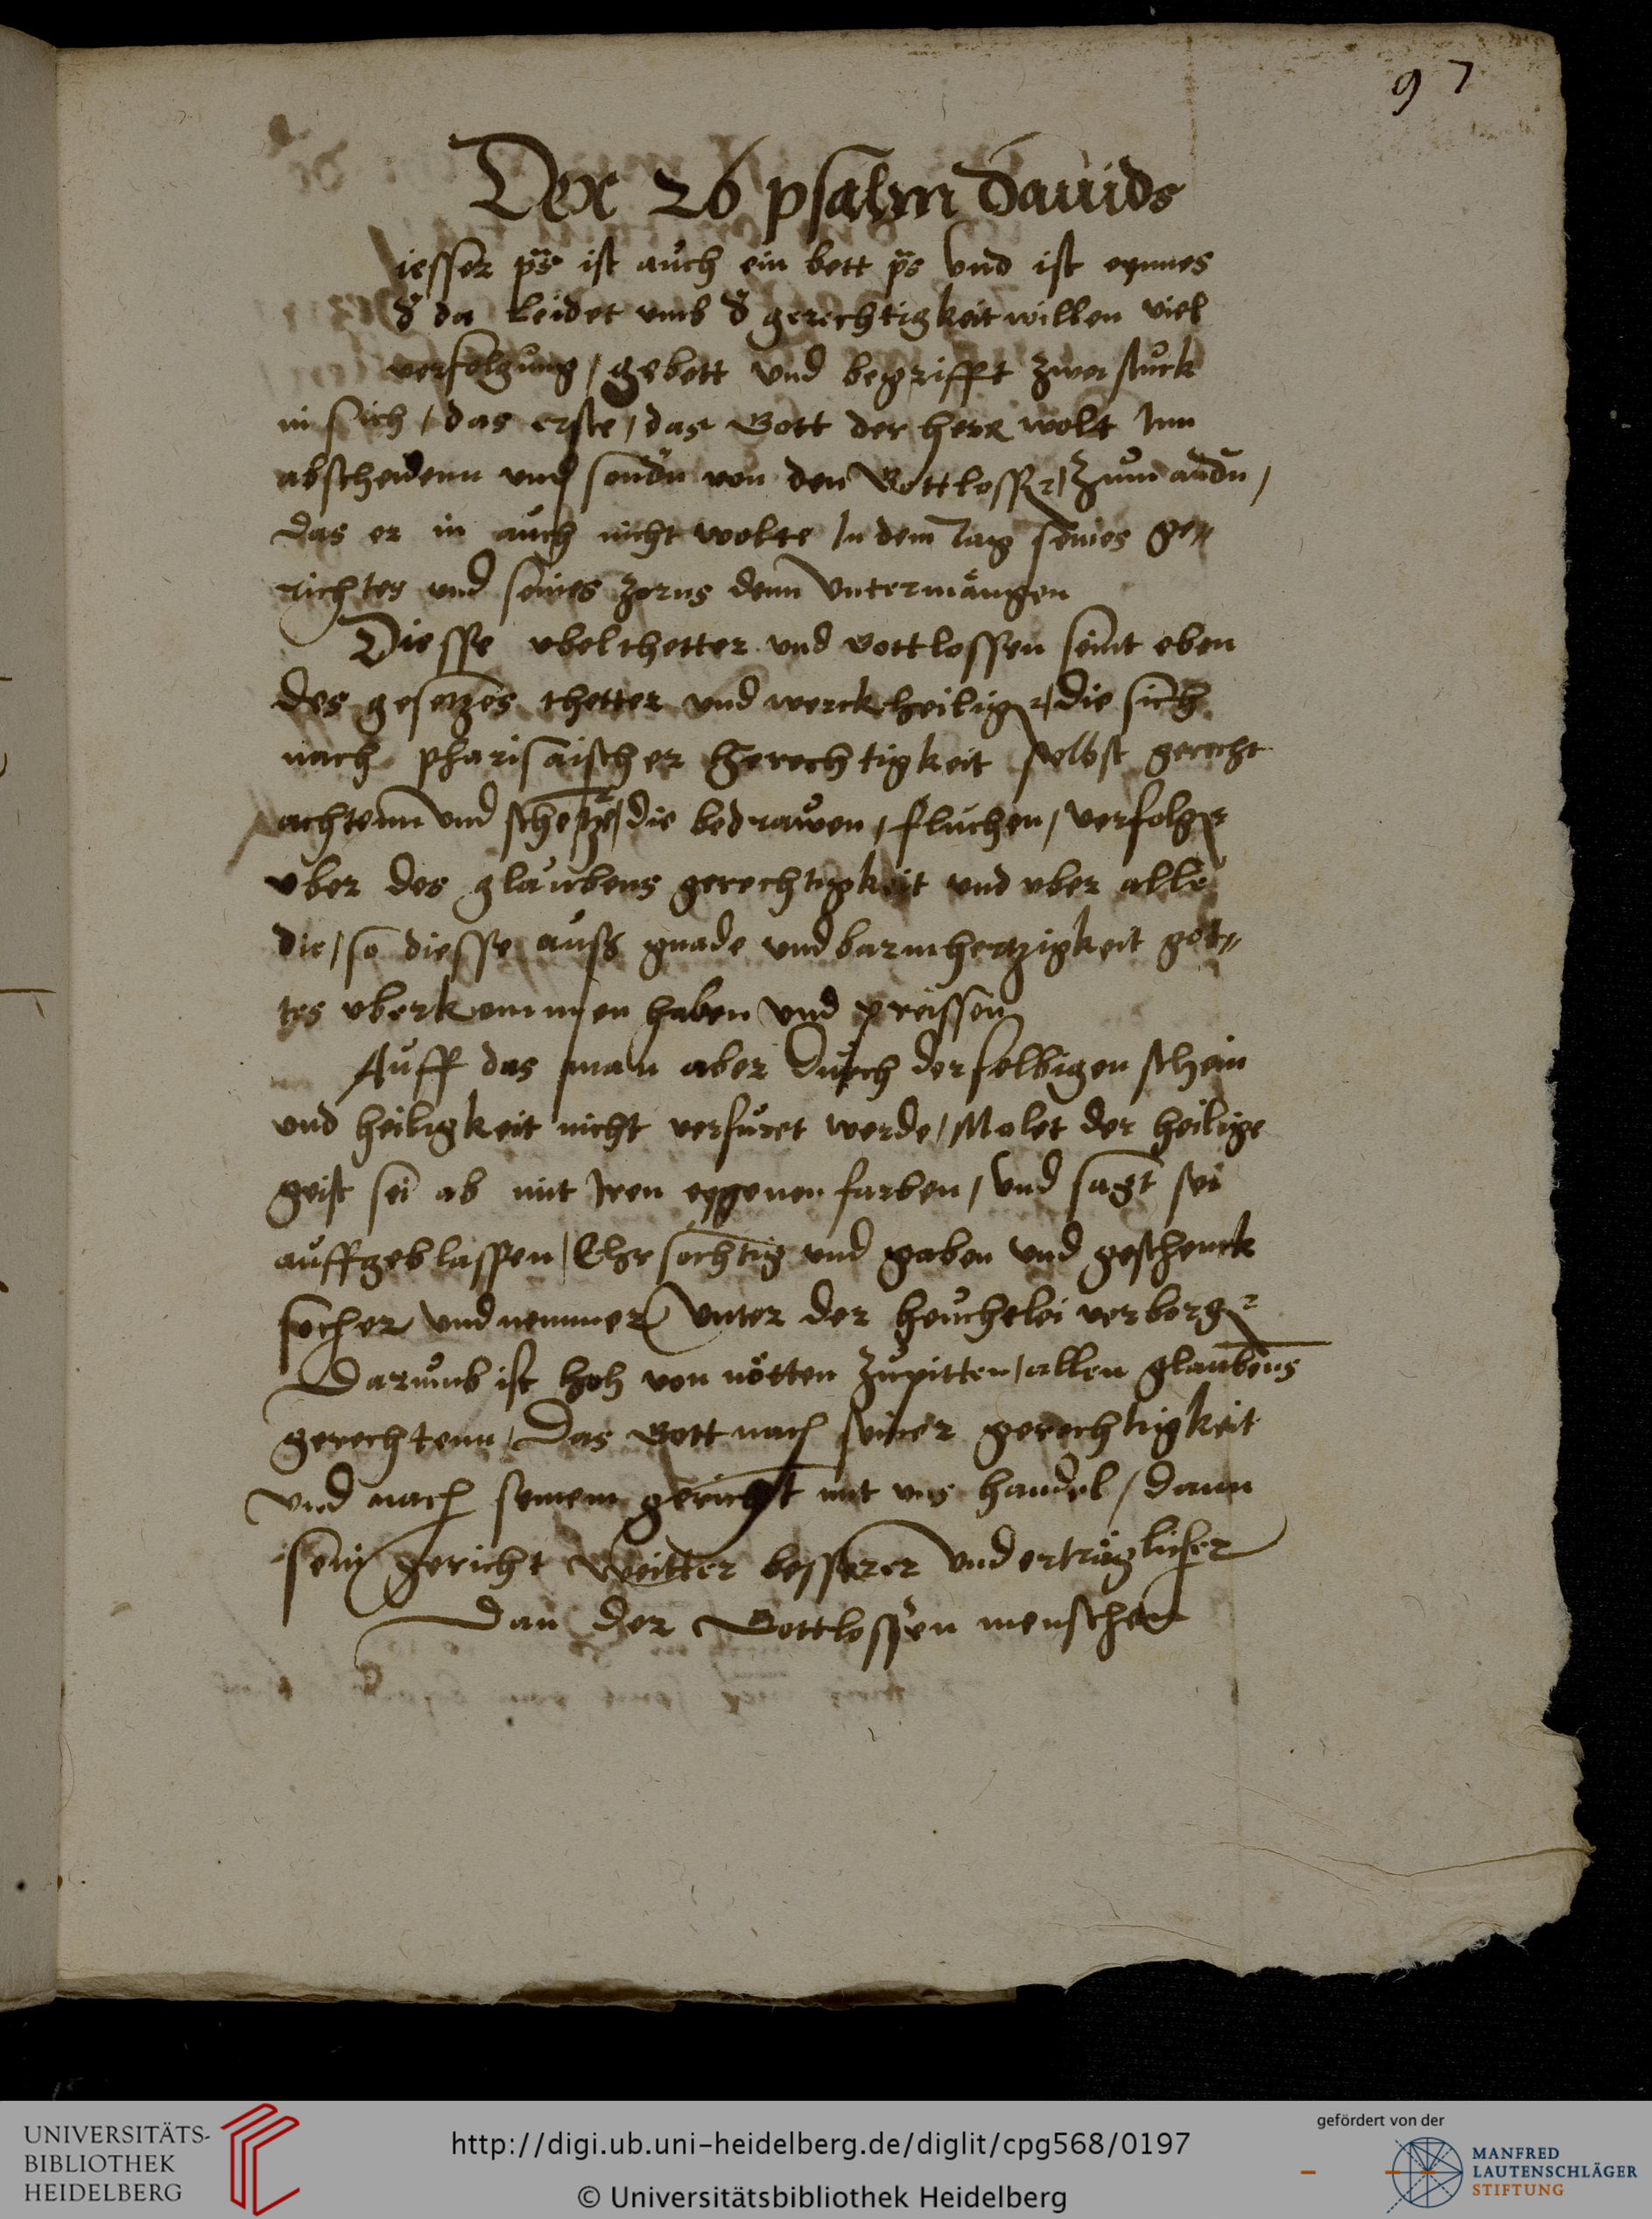 97
Der 26 psalm dauids
iesser ps ist auch ein bett ps vnd ist eynnes
d da leidet vmb d gerechtigkeit willen viel
verfolgung / gebett vnd begrifft zwei stuck
in sich / das erste / das Gott der herr wolt Inn
abscheidenn vnd von den Gottloss / zum andn /
das er in auch nicht wolte In dem tag seines ge„
richtes vnd seines zorns denn vntermängen
Diesse vbelthetter vnd Gottlossen seint eben
des gesetzes thetter vnd werckheilig / die sich
nach pharisaischer gerechtigkeit selbst gerecht
achtenn vnd schetze / die bedrawen / fluchen / verfolg
vber des glaubens gerechtigkeit vnd vber alle
die / so diesse auß gnade vnd barmhertzigkeit got„
tes vberkommen haben vnd preissen
Auff das man aber durch derselbigen schein
vnd heiligkeit nicht verfüret werde / Malet der heilige
geist sei ab mit Iren eygenen farben / vnd sagt sei
auffgeblassen / Ehrsochtig vnd gaben vnd geschenck
socher vnd nemmer vnter der heuchelei verborg
Darumb ist hoh von nötten zu pitten / allen glaubens
gerechtenn / Das Gott nach seiner gerechtigkeit
vnd nach seinem gericht mit vns handel / dann
sein gericht weitter besserer vnd erträglicher
dan der Gottlossen menschen
UNIVERSITÄTS-
BIBLIOTHEK
HEIDELBERG
http://digi.ub.uni-heidelberg.de/diglit/cpg568/0197
© Universitätsbibliothek Heidelberg
gefördert von der
MANFRED
LAUTENSCHLÄGER
STIFTUNG